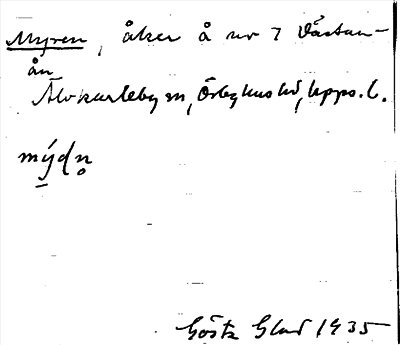 Myren, åker å nr 7 Västan-
ån
Älvkarleby sn, Örbyhus hd, Upps. l.
mýdn̥
Gösta Glad 1935